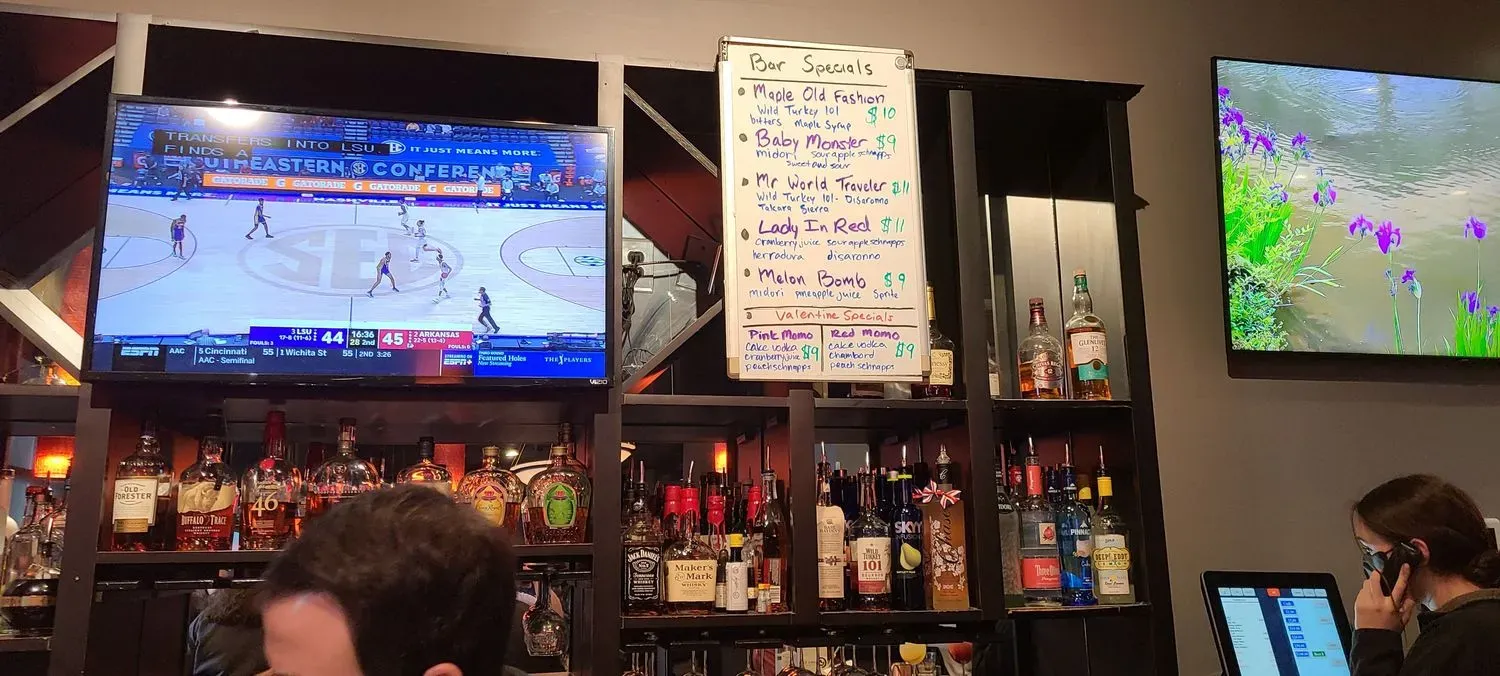 TRANSFERS INTO LSU.
FINDS A
SEC IT JUST MEANS MORE.
UTHEASTERN SEC CONFEREN
GATORADE G GATORADE G GATORADE G GATORADE G GATOR
NASHVILLE
SEC
3 LSU 44 16:36 45 2 ARKANSAS
17-8 (11-6) 28 2nd 22-5 (13-4)
FOULS: 3 FOULS: 0
ESPN AAC 5 Cincinnati 55 1 Wichita St 55 2ND 3:26
AAC - Semifinal
STREAMING ON
ESPN+
Featured Holes
Now Streaming
THE PLAYERS
VIZIO
Bar Specials
Maple Old Fashion
Wild Turkey 101 $10
bitters Maple Syrup
Baby Monster $9
midori sour apple schnapps
sweet and sour
Mr World Traveler $11
Wild Turkey 101- Disaronno
Takara Sierra
Lady In Red $11
Cranberry juice sour apple schnapps
herradura disaronno
Melon Bomb $9
midori pineapple juice Sprite
Valentine Specials
Pink Momo
cake vodka
cranberry juice $9
peach schnapps
Red Momo
cake vodka
chambord $9
peach schnapps
GLENLIVET
12
OLD
FORESTER
BUFFALO
TRACE
46
JACK DANIEL'S
Maker's
Mark
WILD
TURKEY
101
SKYY
PINNAC
DEEP EDDY